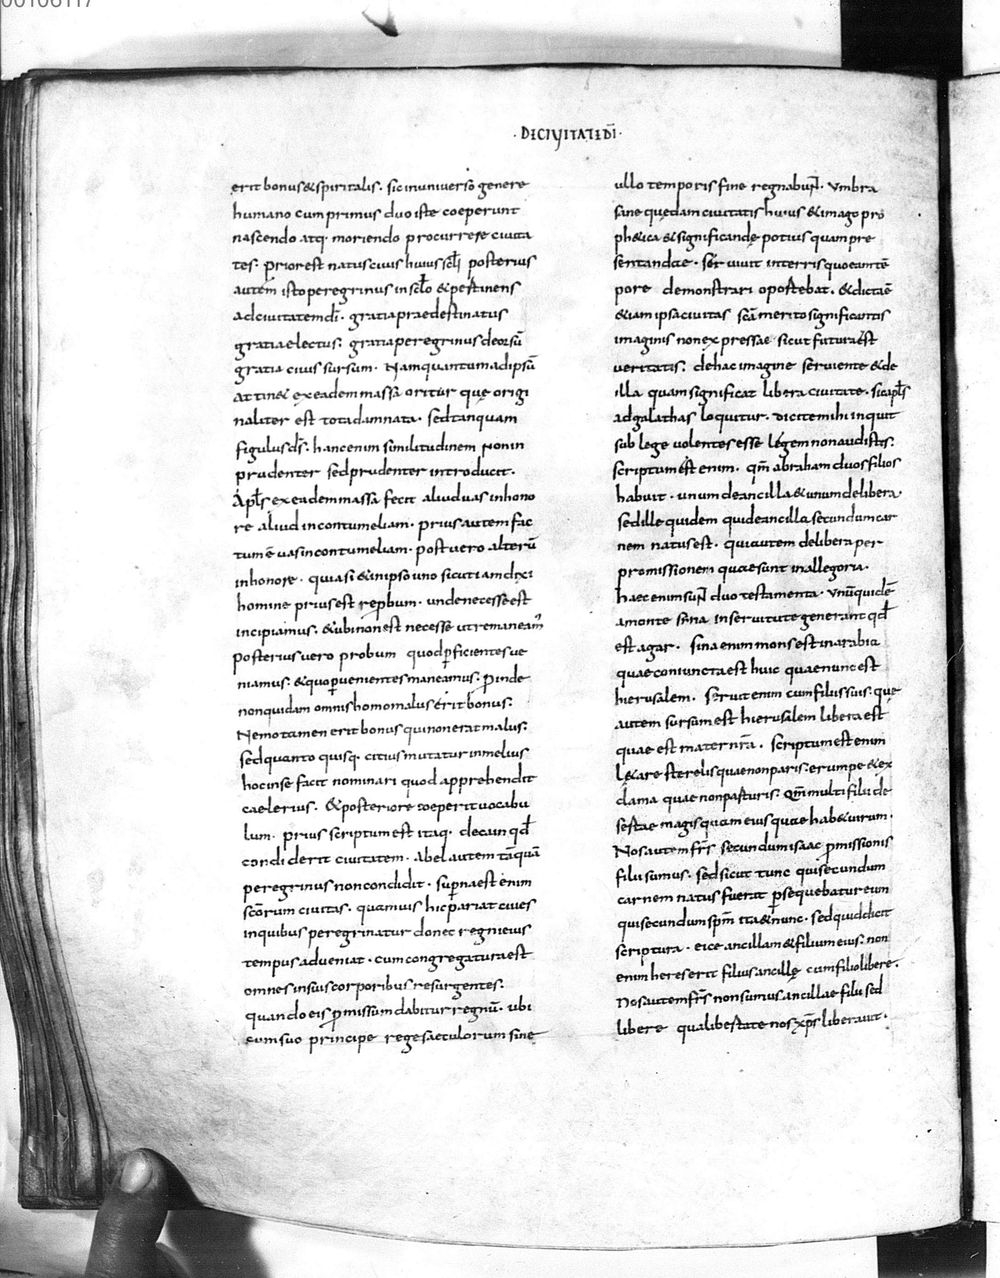 00106117
·DECIVITATEDĪ·
erit bonus & spiritalis. sic in uniuerso genere
humano cum primus duo iste coeperunt
nascendo atq; moriendo procurrere ciuita
tes. prior est natus ciuis huius scłi posterius
autem isto peregrinus in scło & pertinens
ad ciuitatem dī. gratia praedestinatus
gratia electus. gratia peregrinus deorsū
gratia ciuis sursum. Nam quantum ad ipsū
attin& ex eadem massa oritur que origi
naliter est tota damnata. sed tanquam
figulus d̄s. hanc enim similitudinem non in
prudenter sed prudenter introducit.
Apłs ex eadem massa fecit aliud uas in hono
re aliud in contumeliam. prius autem fac
tum ē uas in contumeliam. post uero alterū
in honore. quia si & in ipso uno sicut iam dixi
homine prius est reprbum. unde necesse est
incipiamus. & ubi non est necesse ut remaneam̄
posterius uero probum quod p̱ficientes ue
niamus. & quo p̱uenientes maneamus. p̱inde
non quidam omnis homo malus erit bonus.
Nemo tamen erit bonus qui non erat malus.
sed quanto quisq; citius mutatur in melius
hoc in se facit nominari quod apprehendit
caelerius. & posteriore cooperit uocabu
lum. prius scriptum est itaq; de cain qd̄
condiderit ciuitatem. abel autem tāquā
peregrinus non condidit. sup̱na est enim
scōrum ciuitas. quamuis hic pariat ciues
in quibus peregrinatur donec regni eius
tempus adueniat. cum congregatura est
omnes in suis corporibus resurgentes.
quando eis p̱missum dabitur regnū. ubi
cum suo principe rege saeculorum sine
ullo temporis fine regnabun̄t. Vmbra
sane quedam ciuitatis huius & imago pro
ph&ica & significande potius quam pre
sentandae. seruiuit in terris quo eam tē
pore demonstrari oportebat. & dicta ē
&iam ipsa ciuitas scā merito significantis
imaginis non expressae sicut futura est
ueritatis. de hac imagine seruiente & de
illa quam significat libera ciuitate. sic apłs
ad galathas loquitur. dicite mihi inquit
sub lege uolentes esse legem non audistis.
scriptum est enim. qm̄ abraham duos filios
habuit. unum de ancilla & unum de libera.
sed ille quidem qui de ancilla secundum car
nem natus est. qui autem de libera per
promissionem quae sunt in allegoria.
haec enim sun̄t duo testamenta. Vnū quidē
a monte sina in seruitute generant qd̄
est agar. sina enim mons est in arabia
quae coniuncta est huic quae nunc est
hierusalem. seruit enim cum filiis suis. que
autem sursum est hierusalem libera est
quae est mater nr̄a. scriptum est enim
l&are sterelis quae non paris. erumpe & ex
clama quae non parturis. Qm̄ multi filii de
sertae magis quam eius quae hab& uirum.
Nos autem fr̄s secundum isaac p̱missionis
filii sumus. sed sicut tunc qui secundum
carnem natus fuerat p̱sequebatur eum
qui secundum spm̄ ita & nunc. sed quid dicit
scriptura. eice ancillam & filium eius. non
enim heres erit filius ancillę cum filio libere.
Nos autem fr̄s non sumus ancillae filii sed
libere qua libertate nos xp̄s liberauit.